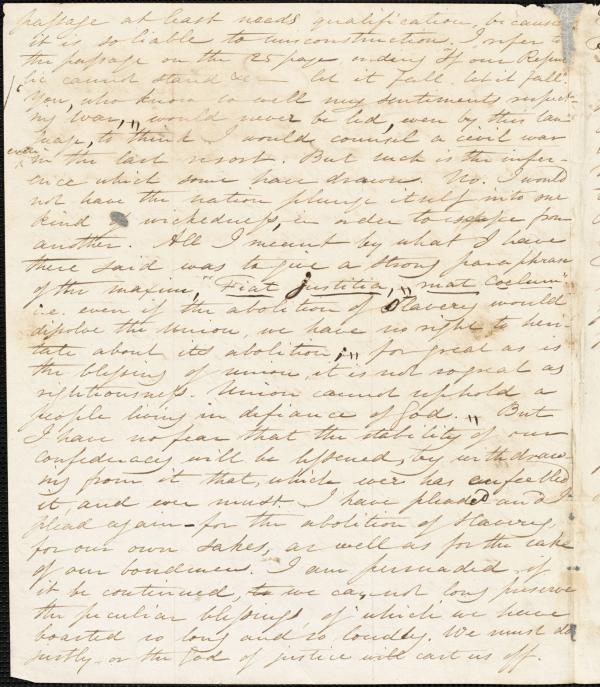 passage at least needs qualification, because
it is so liable to misconstruction. I refer to
the passage on the 25 page ending "If our Repub
lic cannot stand &c — let it fall. let it fall."
You, who know so well my sentiments respect-
ing war, would never be led, even by this lan-
guage, to think I would counsel a civil war
even in the last resort. But such is the infer-
ence which some have drawn. No. I would
not have the nation plunge itself into one
kind of wickedness, in order to escape from
another. All I meant by what I have
there said was to give a strong paraphrase
of the maxim, "Fiat justitia, ruat Coelum"
i.e. even if the abolition of Slavery would
disolve the Union, we have no right to hesi-
tate about its abolition; for great as is
the blessing of union, it is not so great as
righteousness. Union cannot uphold a
people living in defiance of God. But
I have no fear that the stability of our
confederacy will be lessened, by withdraw-
ing from it that, which ever has enfeebled
it and ever must. I have pleaded and I
plead again - for the abolition of Slavery,
for our own sakes, as well as for the sake
of our bondmen. I am persuaded, if
it be continued, we cannot long preserve
the peculiar blessings of which we have
boasted so long and so loudly. We must do
justly or the God of justice will cast us off.